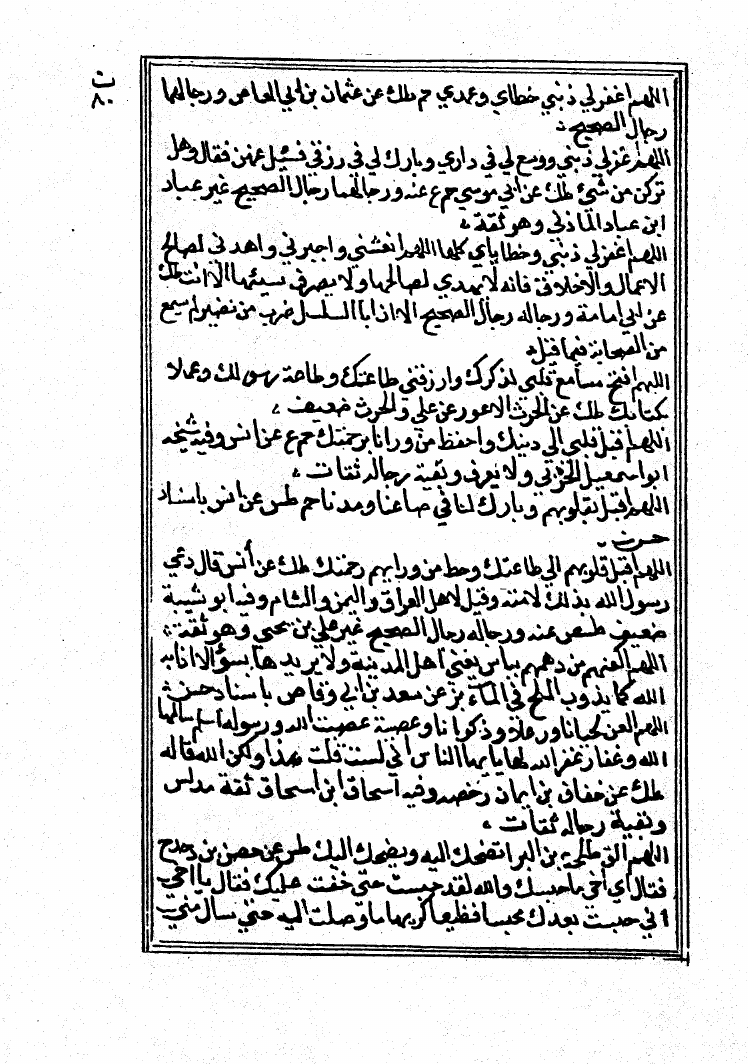 ت
٨٠
اللهم اغفر لي ذنبي خطاي وعمدي حم طك عن عثمان بن ابي العاص ورجالهما
رجال الصحيح
اللهم اغفر لي ذنبي ووسع لي في داري وبارك لي في رزقي فسئل عنهن فقال وهل
تركن من شئ طك عن ابي موسي حم ع عنه ورجالهما رجال الصحيح غير عباد
ابن عباد الماذني وهو ثقة
اللهم اغفر لي ذنبي وخطاياي كلها اللهم انعشني واجبرني واهدني لصالح
الاعمال والاخلاق فانه لا يهدي لصالحها ولا يصرف سيئها الا انت طك
عن ابي امامة ورجاله رجال الصحيح الا اذابا السلسل ضرب من نضير لم يسمع
من الصحابة فيما قيل
اللهم افتح مسامع قلبي لذكرك وارزقني طاعتك وطاعة رسولك وعملا
بكتابك طك عن الحرث الاعور عن علي والحرث ضعيف
اللهم اقبل قلبي الي دينك واحفظ من ورانا برحمتك حم ع عن انس وفيه شيخه
ابو اسمعيل الحزني ولا يعرف وبقية رجاله ثقات
اللهم اقبل بقلوبهم وبارك لنا في صاعنا ومدنا حم طس عن انس باسناد
حسن
اللهم اقبل قلوبهم الي طاعتك وحط من ورايهم رحمتك طك عن أنس قال دعي
رسول الله بذلك لامته وقيل لاهل العراق واليمن والشام وفيه ابو شيبة
ضعيف طسص عنه ورجاله رجال الصحيح غير علي بن يحيي وهو ثقة
اللهم اكفهم من دهمهم بباس يعني اهل المدينة ولا يريدها بسؤ الا اذابه
الله كما يذوب الملح في الماء بز عن سعد بن ابي وقاص باسناد حسن
اللهم العن لحيانا ورعلا وذكوانا وعصية عصت الله ورسوله اسلم سالمها
الله وغفار غفر الله لها يايها الناس اني لست قلت بهذا ولكن الله قاله
طك عن خفاف بن ايمان رحضه وفيه اسحاق ابن اسحاق ثقة مدلس
وبقية رجاله ثقات
اللهم الق طلحة بن البرا تضحك اليه ويضحك اليك طس عن حصن بن وحوح
فقال اي اخي ما حبسك والله لقد حبست حتي خفت عليك فقال يا اخي
اني حبست بعدك محبسا فظيعا كريها ما وصلت اليه حتي سال مني